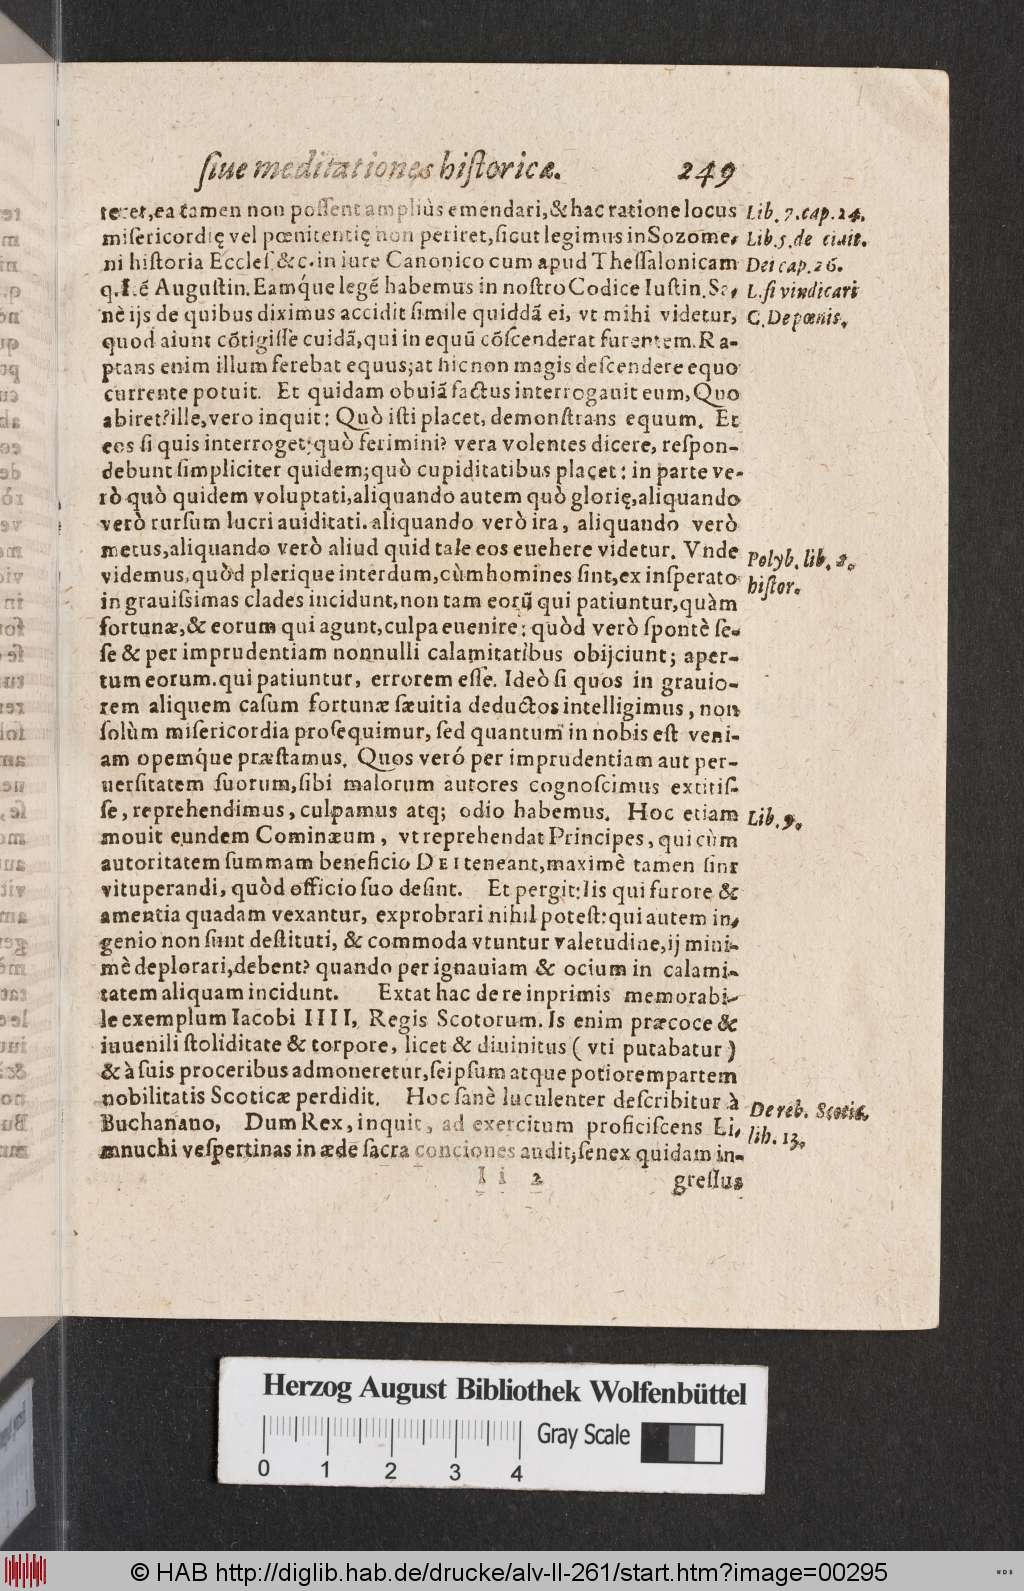 ſiue meditationes hiſtoricæ. 249
teret, ea tamen non poſſent ampliùs emendari, & hac ratione locus
Lib. 7. cap. 24.
miſericordię vel pœnitentię non periret, ſicut legimus in Sozome-
Lib. 5. de ciuit.
ni hiſtoria Eccleſ. &c. in iure Canonico cum apud Theſſalonicam
Dei cap. 26.
q. I. ē Auguſtin. Eamq́ue legē habemus in noſtro Codice Iuſtin. Se,
L. ſi vindicari
nè ijs de quibus diximus accidit ſimile quiddã ei, vt mihi videtur,
C. De pœnis.
quod aiunt cõtigiſſe cuidã, qui in equũ cõſcenderat furentem. Ra-
ptans enim illum ferebat equus; at hic non magis deſcendere equo
currente potuit. Et quidam obuiã factus interrogauit eum, Quo
abiret? ille, vero inquit: Quò iſti placet, demonſtrans equum. Et
eos ſi quis interroget: quò ferimini? vera volentes dicere, reſpon-
debunt ſimpliciter quidem; quò cupiditatibus placet: in parte ve-
rò quò quidem voluptati, aliquando autem quò glorię, aliquando
verò rurſum lucri auiditati. aliquando verò ira, aliquando verò
metus, aliquando verò aliud quid tale eos euehere videtur. Vnde
videmus, quòd plerique interdum, cùm homines ſint, ex inſperato
Polyb. lib. 2.
hiſtor.
in grauiſsimas clades incidunt, non tam eorũ qui patiuntur, quàm
fortunæ, & eorum qui agunt, culpa euenire: quòd verò ſpontè ſe-
ſe & per imprudentiam nonnulli calamitatibus obijciunt; aper-
tum eorum. qui patiuntur, errorem eſſe. Ideò ſi quos in grauio-
rem aliquem caſum fortunæ ſæuitia deductos intelligimus, non
ſolùm miſericordia proſequimur, ſed quantum in nobis eſt veni-
am opemq́ue præſtamus. Quos veró per imprudentiam aut per-
uerſitatem ſuorum, ſibi malorum autores cognoſcimus extitiſ-
ſe, reprehendimus, culpamus atq; odio habemus. Hoc etiam
Lib. 9.
mouit eundem Cominæum, vt reprehendat Principes, qui cùm
autoritatem ſummam beneficio DEI teneant, maximè tamen ſint
vituperandi, quòd officio ſuo deſint. Et pergit: Iis qui furore &
amentia quadam vexantur, exprobrari nihil poteſt: qui autem in-
genio non ſunt deſtituti, & commoda vtuntur valetudine, ij mini-
mè deplorari, debent? quando per ignauiam & ocium in calami-
tatem aliquam incidunt. Extat hac de re inprimis memorabi-
le exemplum Iacobi IIII, Regis Scotorum. Is enim præcoce &
iuuenili ſtoliditate & torpore, licet & diuinitus (vti putabatur)
& à ſuis proceribus admoneretur, ſeipſum atque potiorem partem
nobilitatis Scoticæ perdidit. Hoc ſanè luculenter deſcribitur à
De reb. Scotic.
Buchanano, Dum Rex, inquit, ad exercitum proficiſcens Li-
lib. 13.
mnuchi veſpertinas in æde ſacra conciones audit; ſenex quidam in-
I i 2 greſſus
Herzog August Bibliothek Wolfenbüttel
Gray Scale
0 1 2 3 4
© HAB http://diglib.hab.de/drucke/alv-ll-261/start.htm?image=00295